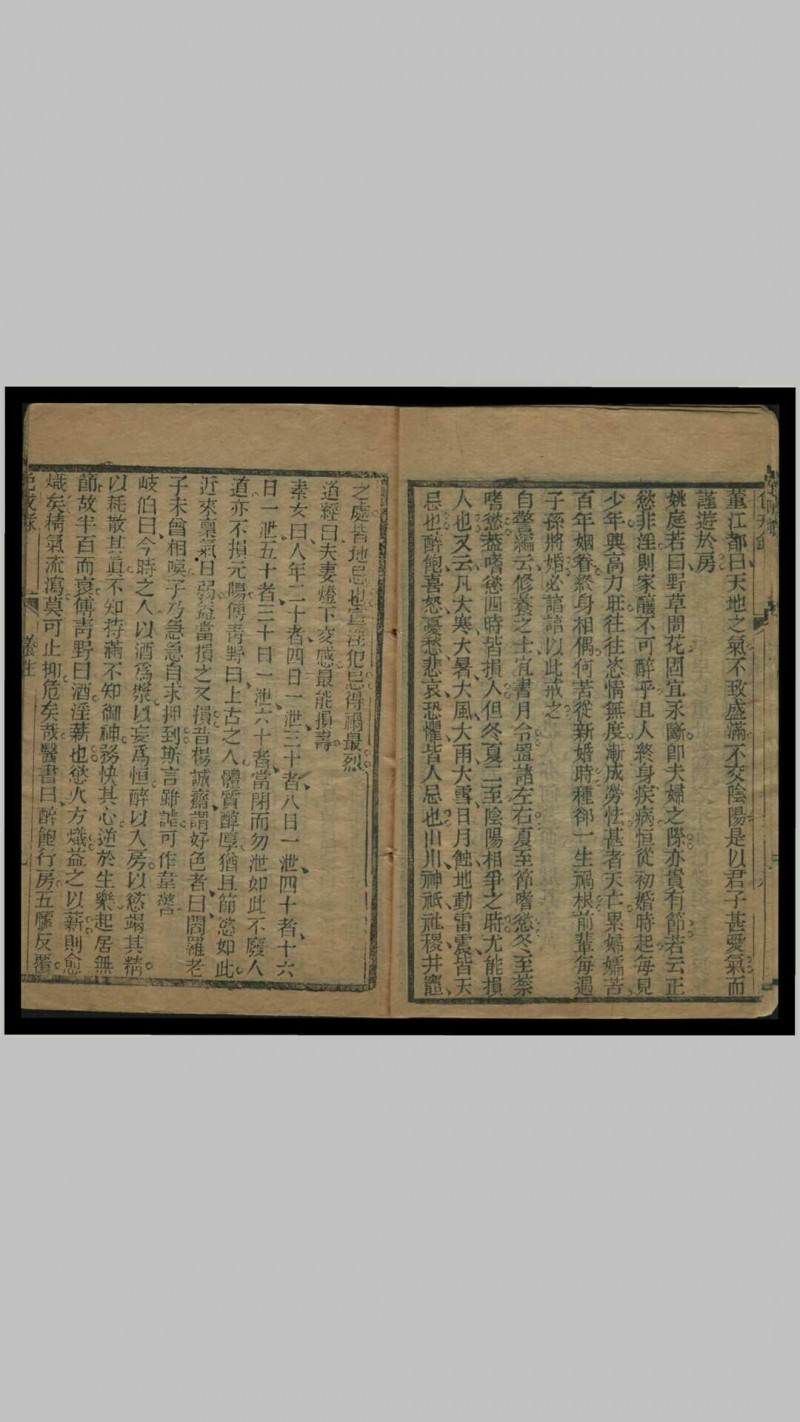 董江都曰天地之氣不致盛滿不交陰陽是以君子甚愛氣而
謹遊於房
姚庭若曰野草閒花固宜永斷卽夫婦之際亦貴有節若云正
慾非淫則家釀不可醉乎且人終身疾病恒從初婚時起每見
少年興高力旺往往恣情無度漸成勞怯甚者夭亡累孀孀苦
百年姻眷終身相偶何苦從新婚時種卻一生禍根前輩每遇
子孫將婚必諳諳以此戒之
自警編云修養之士宜書月令置諸左右夏至節嗜慾冬至禁
嗜慾蓋嗜慾四時皆損人但冬夏二至陰陽相爭之時尤能損
人也又云凡大寒大暑大風大雨大雪日月蝕地動雷震皆天
忌也醉飽喜怒憂愁悲哀恐懼皆人忌也山川神祇社稷井竈
之處皆地忌也 淫犯忌得禍最烈
道經曰夫妻燈下交感最能損壽
素女曰人年二十者四日一泄三十者八日一泄四十者十六
日一泄五十者三十日一泄六十者當閉而勿泄如此不廢人
道亦不損元陽傅靑野曰上古之人體質醇厚猶且節慾如此
近來稟氣日弱益當損之又損昔楊誠齋謂好色者曰閻羅老
子未曾相喚子乃急急自求押到斯言雖謔可作韋警
岐伯曰今時之人以酒爲漿以妄爲恒醉以入房以慾竭其精
以耗散其眞不知持滿不知御神務快其心逆於生樂起居無
節故半百而衰傅靑野曰酒淫薪也慾火方熾益之以薪則愈
熾矣精氣流瀉莫可止抑危矣哉醫書曰醉飽行房五臟反覆
養生